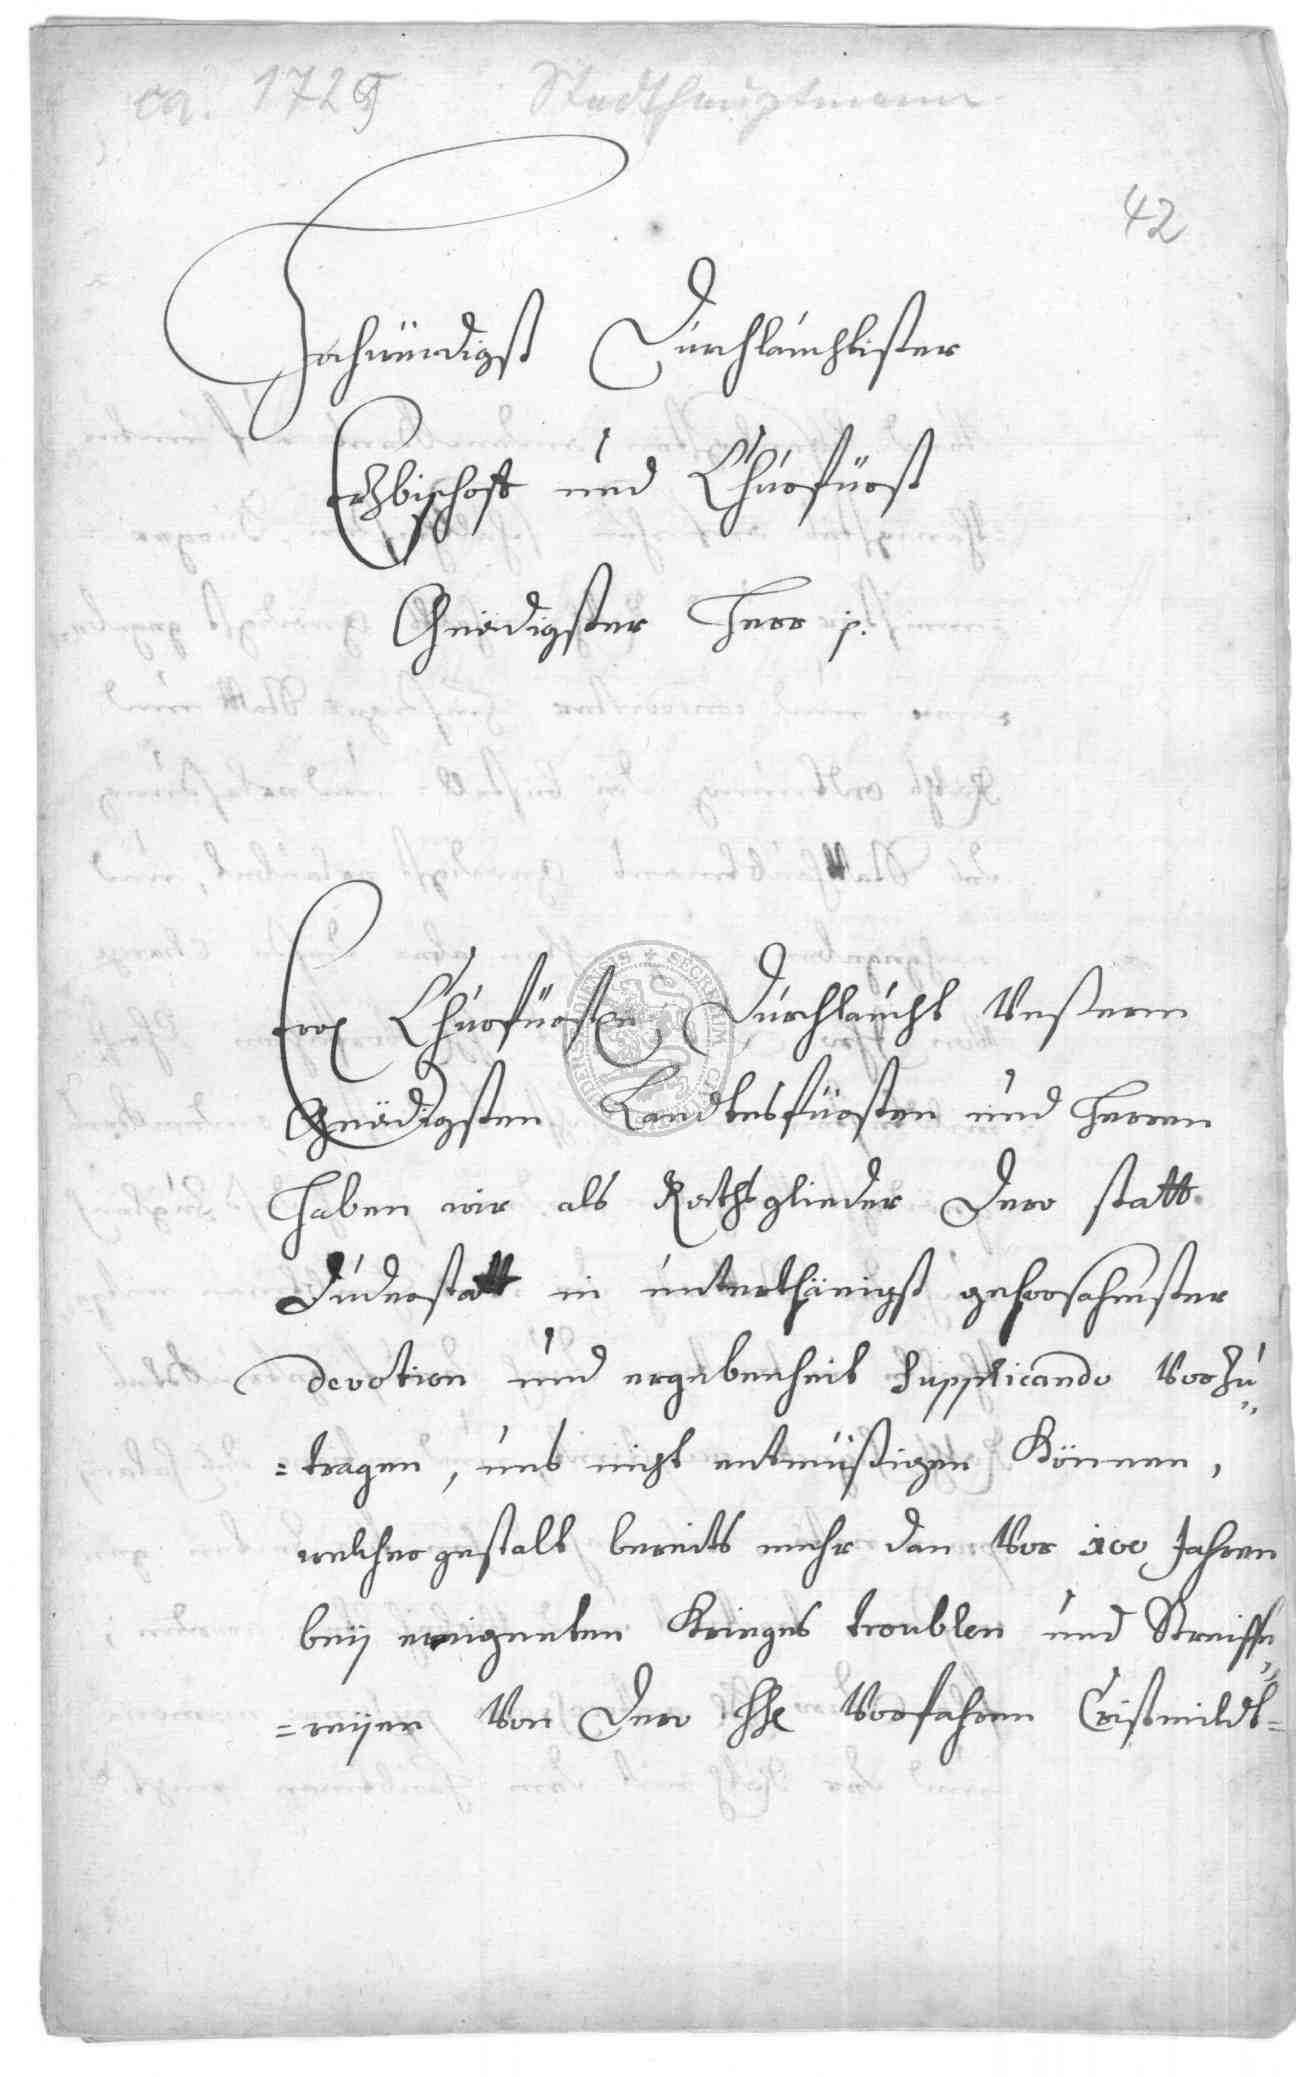 ca. 1725 Stadthauptmann
42
Hochwürdigst Durchläuchtister
Ertzbischoff und Churfürst
Gnädigster Herr p.
Ewer Churfürstl. Durchläucht Unßerm
Gnädigsten Landtesfürsten und Herren
Haben wir als Rathsglieder Dero statt
Duderstatt in unterthänigst gehorsahmster
devotion und ergebenheit supplicando Vorzu
=tragen, uns nicht entmüßigen Können,
welcher gestalt bereits mehr dan Vor 100 Jahren
beÿ ereigneten Krieges troublen und Streiffe
=reÿen Von Dero HH Vorfahren Cristmildt=